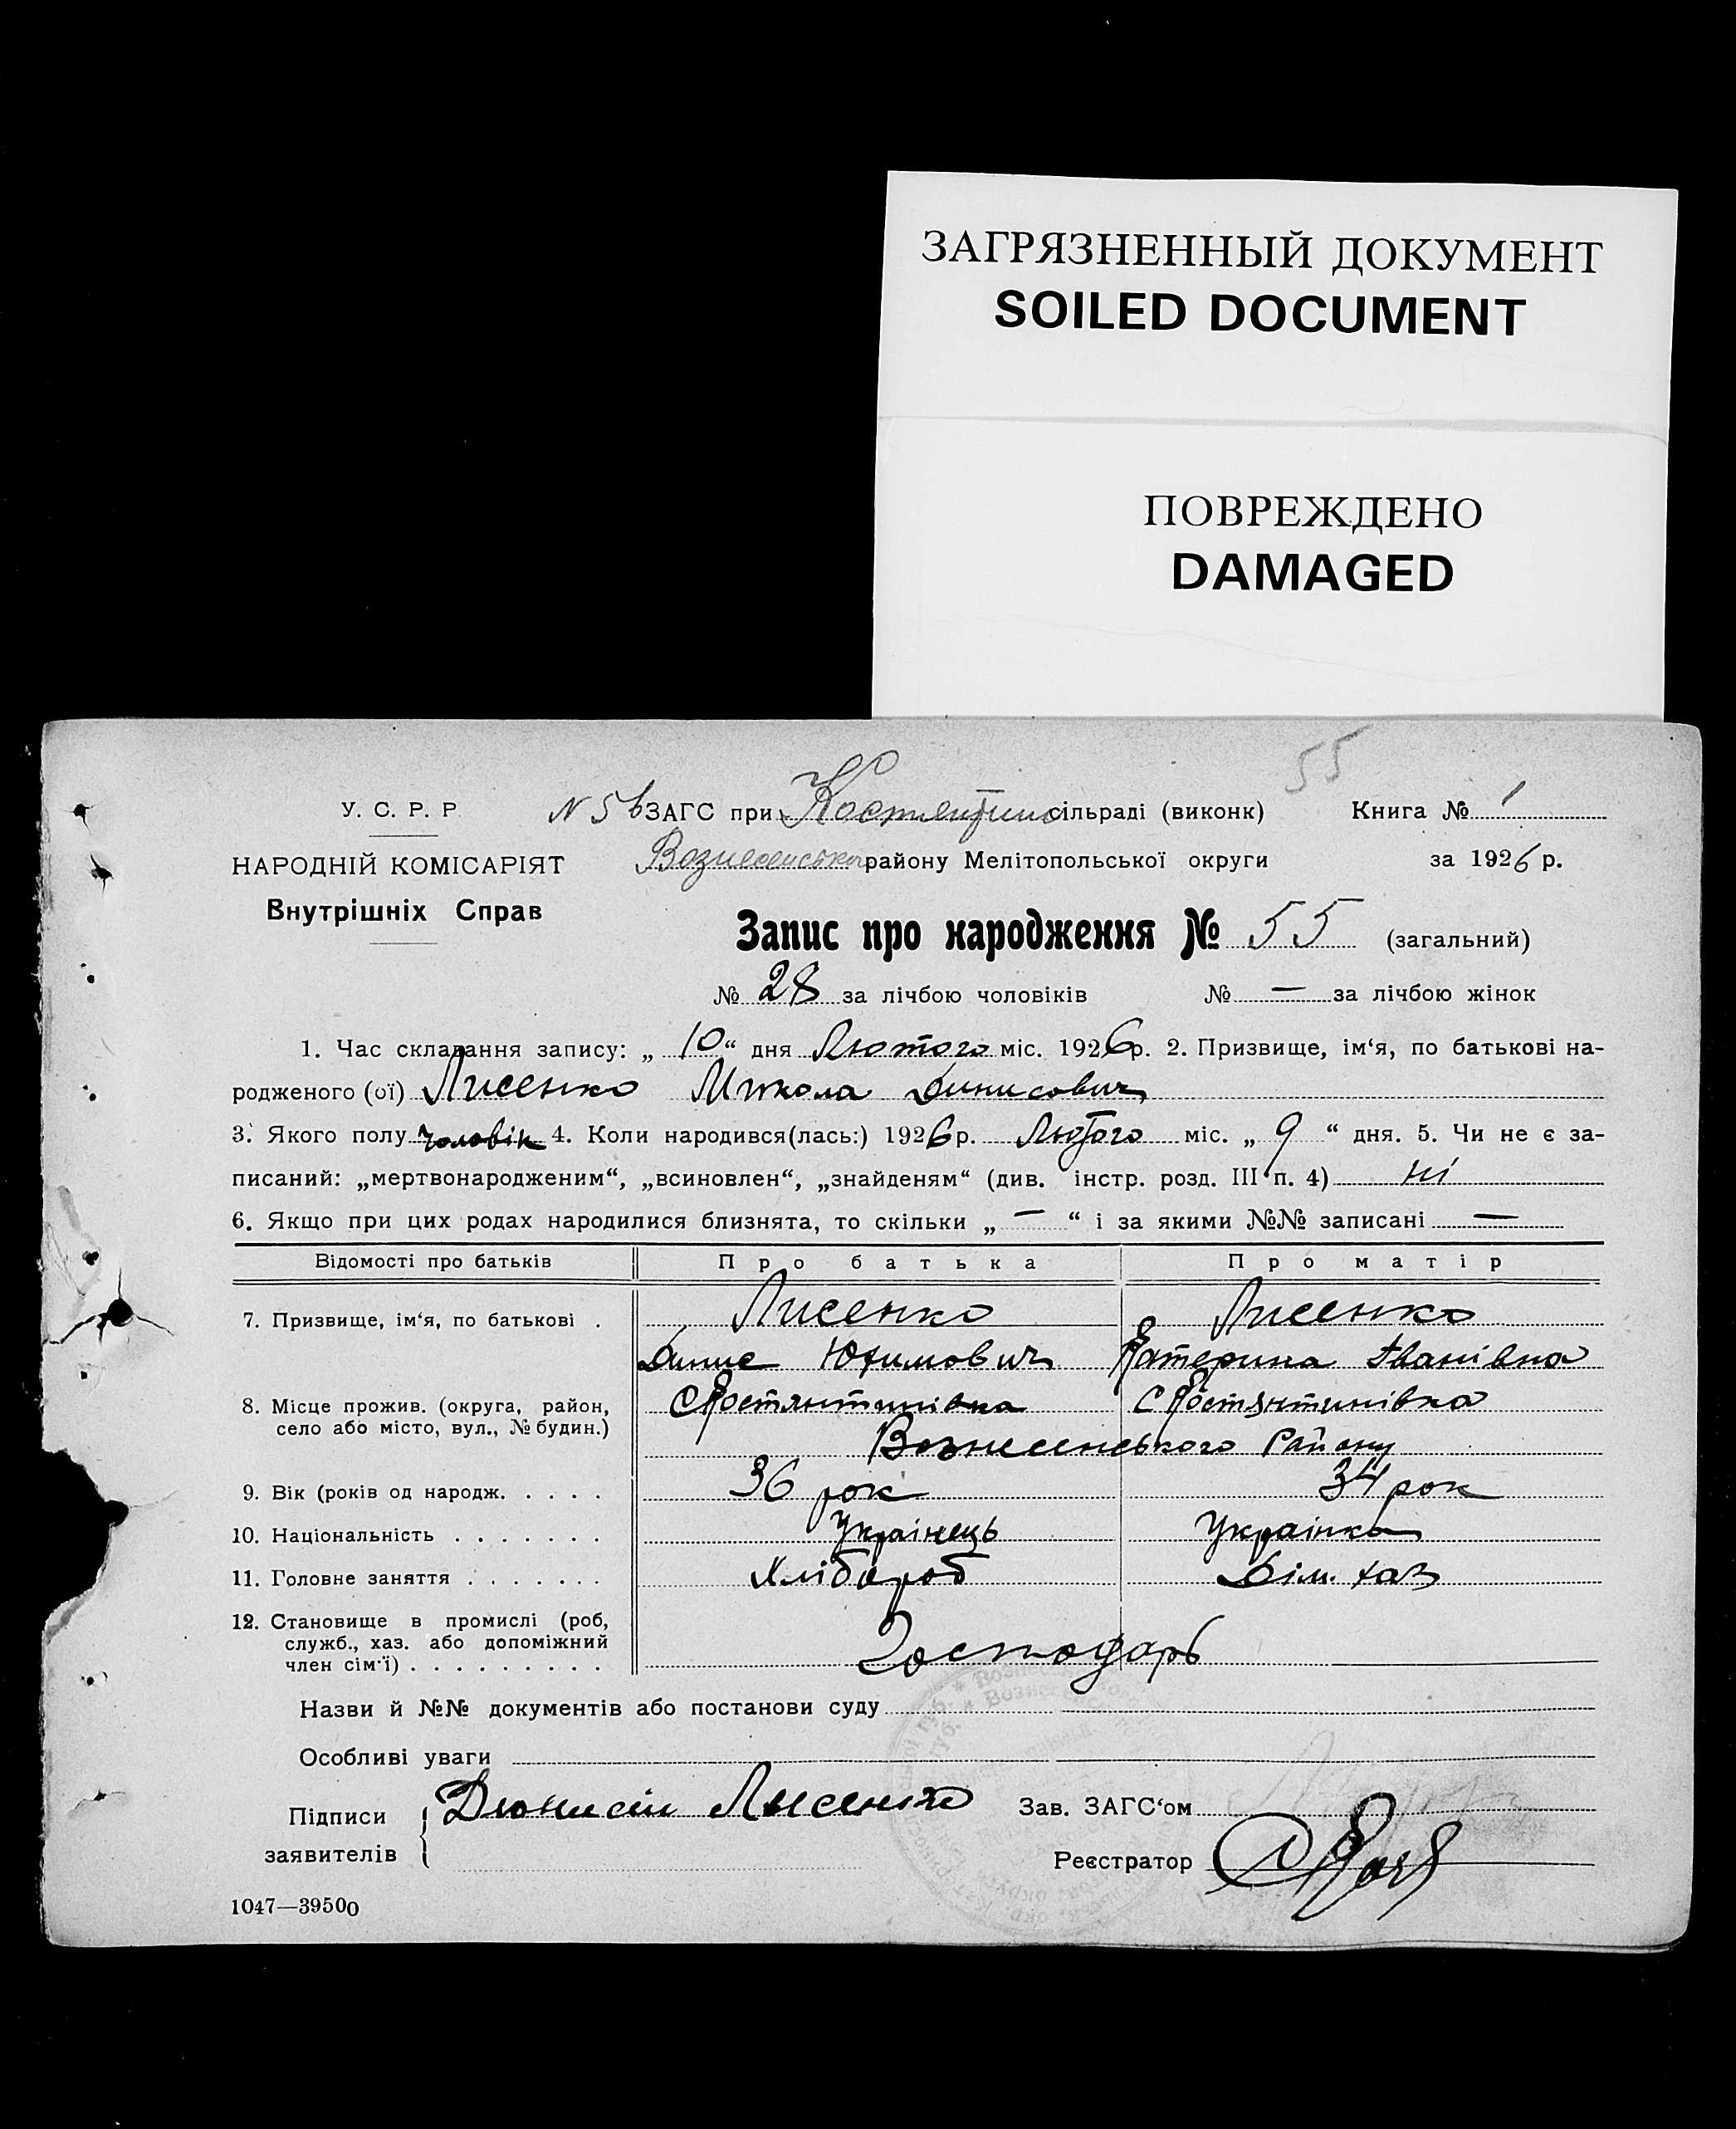 ЗАГРЯЗНЕННЫЙ ДОКУМЕНТ
SOILED DOCUMENT
ПОВРЕЖДЕНО
DAMAGED
55
У. С. Р. Р
НАРОДНІЙ КОМІСАРІЯТ
Внутрішніх Справ
ЗАГС при Костянтино сільраді (виконк) Книга № 1
Вознесенського району Мелітопольської округи за 1926 р.
Запис про народження № 55 (загальний)
№ 28 за лічбою чоловіків № — за лічбою жінок
1. Час складання запису: „ 10 “ дня Лютого міс. 1926р. 2. Призвище, ім‘я, по батькові на-
родженого (ої) Лисенко Микола Динисович
3. Якого полу чоловік 4. Коли народився(лась:) 1926р. Лютого міс. „ 9 “ дня. 5. Чи не є за-
писаний: „мертвонародженим“, „всиновлен“, „знайденям“ (див. інстр. розд. III п. 4) ні
6. Якщо при цих родах народилися близнята, то скільки „ — “ і за якими №№ записані —
Відомості про батьків Про батька Про матір
7. Призвище, ім‘я, по батькові . Лисенко Лисенко
Динис Юхимович Катерина Іванівна
8. Місце прожив. (округа, район, С Костянтинівка С Костянтинівка
село або місто, вул., № будин.)
Вознесенського Району
9. Вік (років од народж. . . . . 36 рок 34 рок
10. Національність . . . . . . . Українець Українка
11. Головне заняття . . . . . . . Хлібороб Дім. хаз
12. Становище в промислі (роб,
служб., хаз. або допоміжний
член сім‘ї) . . . . . . . . . Господарь
Назви й №№ документів або постанови суду
Особливі уваги
Підписи Дионисій Лисенко Зав. ЗАГС‘ом
заявителів Реєстратор
1047—39500